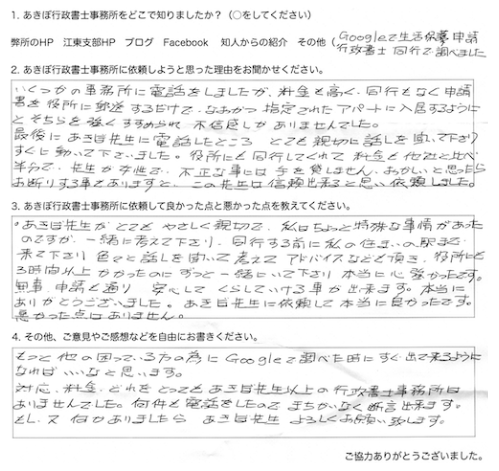 1. あきぼ行政書士事務所をどこで知りましたか？（○をしてください）
弊所のHP　江東支部HP　ブログ　Facebook　知人からの紹介　その他（Googleで生活保護申請
行政書士 同行で調べました
2. あきぼ行政書士事務所に依頼しようと思った理由をお聞かせください。
いくつかの事務所に電話をしましたが、料金も高く、同行もなく申請
書を役所に郵送するだけで、なおかつ指定されたアパートに入居するように
とそちらを強くすすめられ不信感しかありませんでした。
最後にあきぼ先生に電話したところ とても親切に話しを聞いて下さり
すぐに動いて下さいました。役所にも同行してくれて料金も他社と比べ
半分で、先生が女性で、不正な事には手を貸しません、おかしいと思ったら
お断りする事もありますと、この先生は信頼出来ると思い依頼しました。
3. あきぼ行政書士事務所に依頼して良かった点と悪かった点を教えてください。
・あきぼ先生がとてもやさしく親切で、私はちょっと特殊な事情があった
のですが、一緒に考えて下さり、同行する前に私の住まいの駅まで
来て下さり色々と話しを聞いて考えてアドバイスなども頂き、役所にも
3時間以上かかったのにずっと一緒にいて下さり本当に心強かったです。
無事、申請も通り 安心してくらしていける事が出来ます。本当に
ありがとうございました。あきぼ先生に依頼して本当に良かったです。
悪かった点はありません。
4. その他、ご意見やご感想などを自由にお書きください。
もっと他の困っている方の為にGoogleで調べた時にすぐ出て来るように
なればいいなと思います。
対応、料金、どれをとってもあきぼ先生以上の行政書士事務所は
ありませんでした。何件も電話をしたのでまちがいなく断言出来ます。
もし、又何かありましたら あきぼ先生 よろしくお願い致します。
ご協力ありがとうございました。